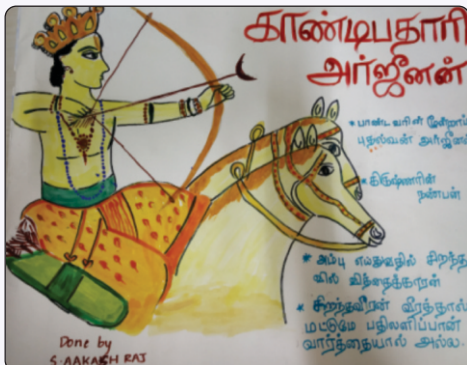 காண்டிபதாரி
அர்ஜீனன்
* பாண்டவரின் மூன்றாம்
புதல்வன் அர்ஜீனன்
* கிருஷ்ணரின்
நண்பன்
* அம்பு எய்துவதில் சிறந்த
வில் வித்தைக்காரன்
* சிறந்தவீரன் வீரத்தால்
மட்டுமே பதிலளிப்பான்
வார்த்தையால் அல்ல.
Done by
S.AAKASH RAJ